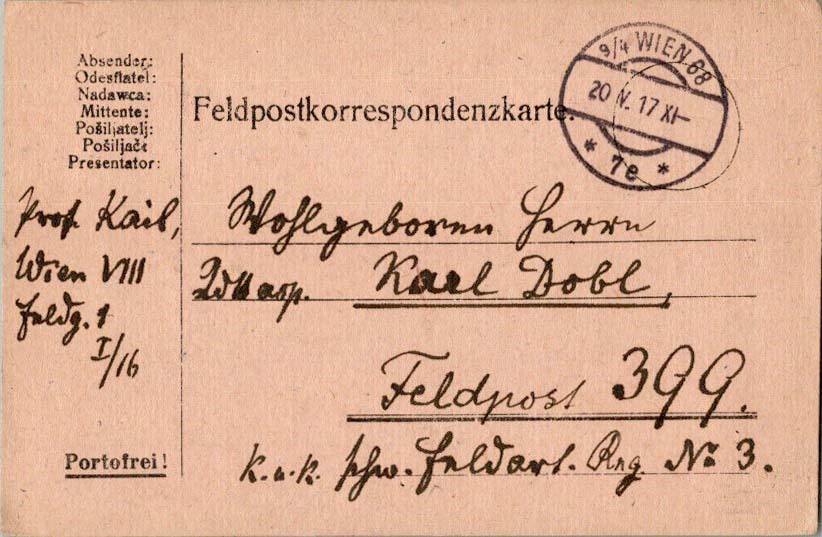 Absender:
Odesílatel:
Nadawca:
Mittente:
Pošiljatelj:
Pošiljač:
Presentator:
Feldpostkorrespondenzkarte.
9/4 WIEN 68
20 V. 17 XI–
* 7e *
Prof. Kail,
Wien VIII
Feldg. 1
I/16
Wohlgeboren Herrn
Karl Dobl,
Feldpost 399.
k. u. k. schw. Feldart. Rng. No 3.
Portofrei!